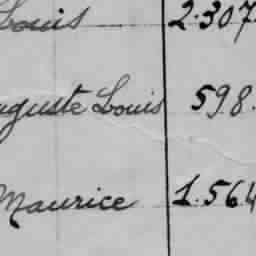 Louis 2.307
uguste Louis 598.
Maurice 1.564